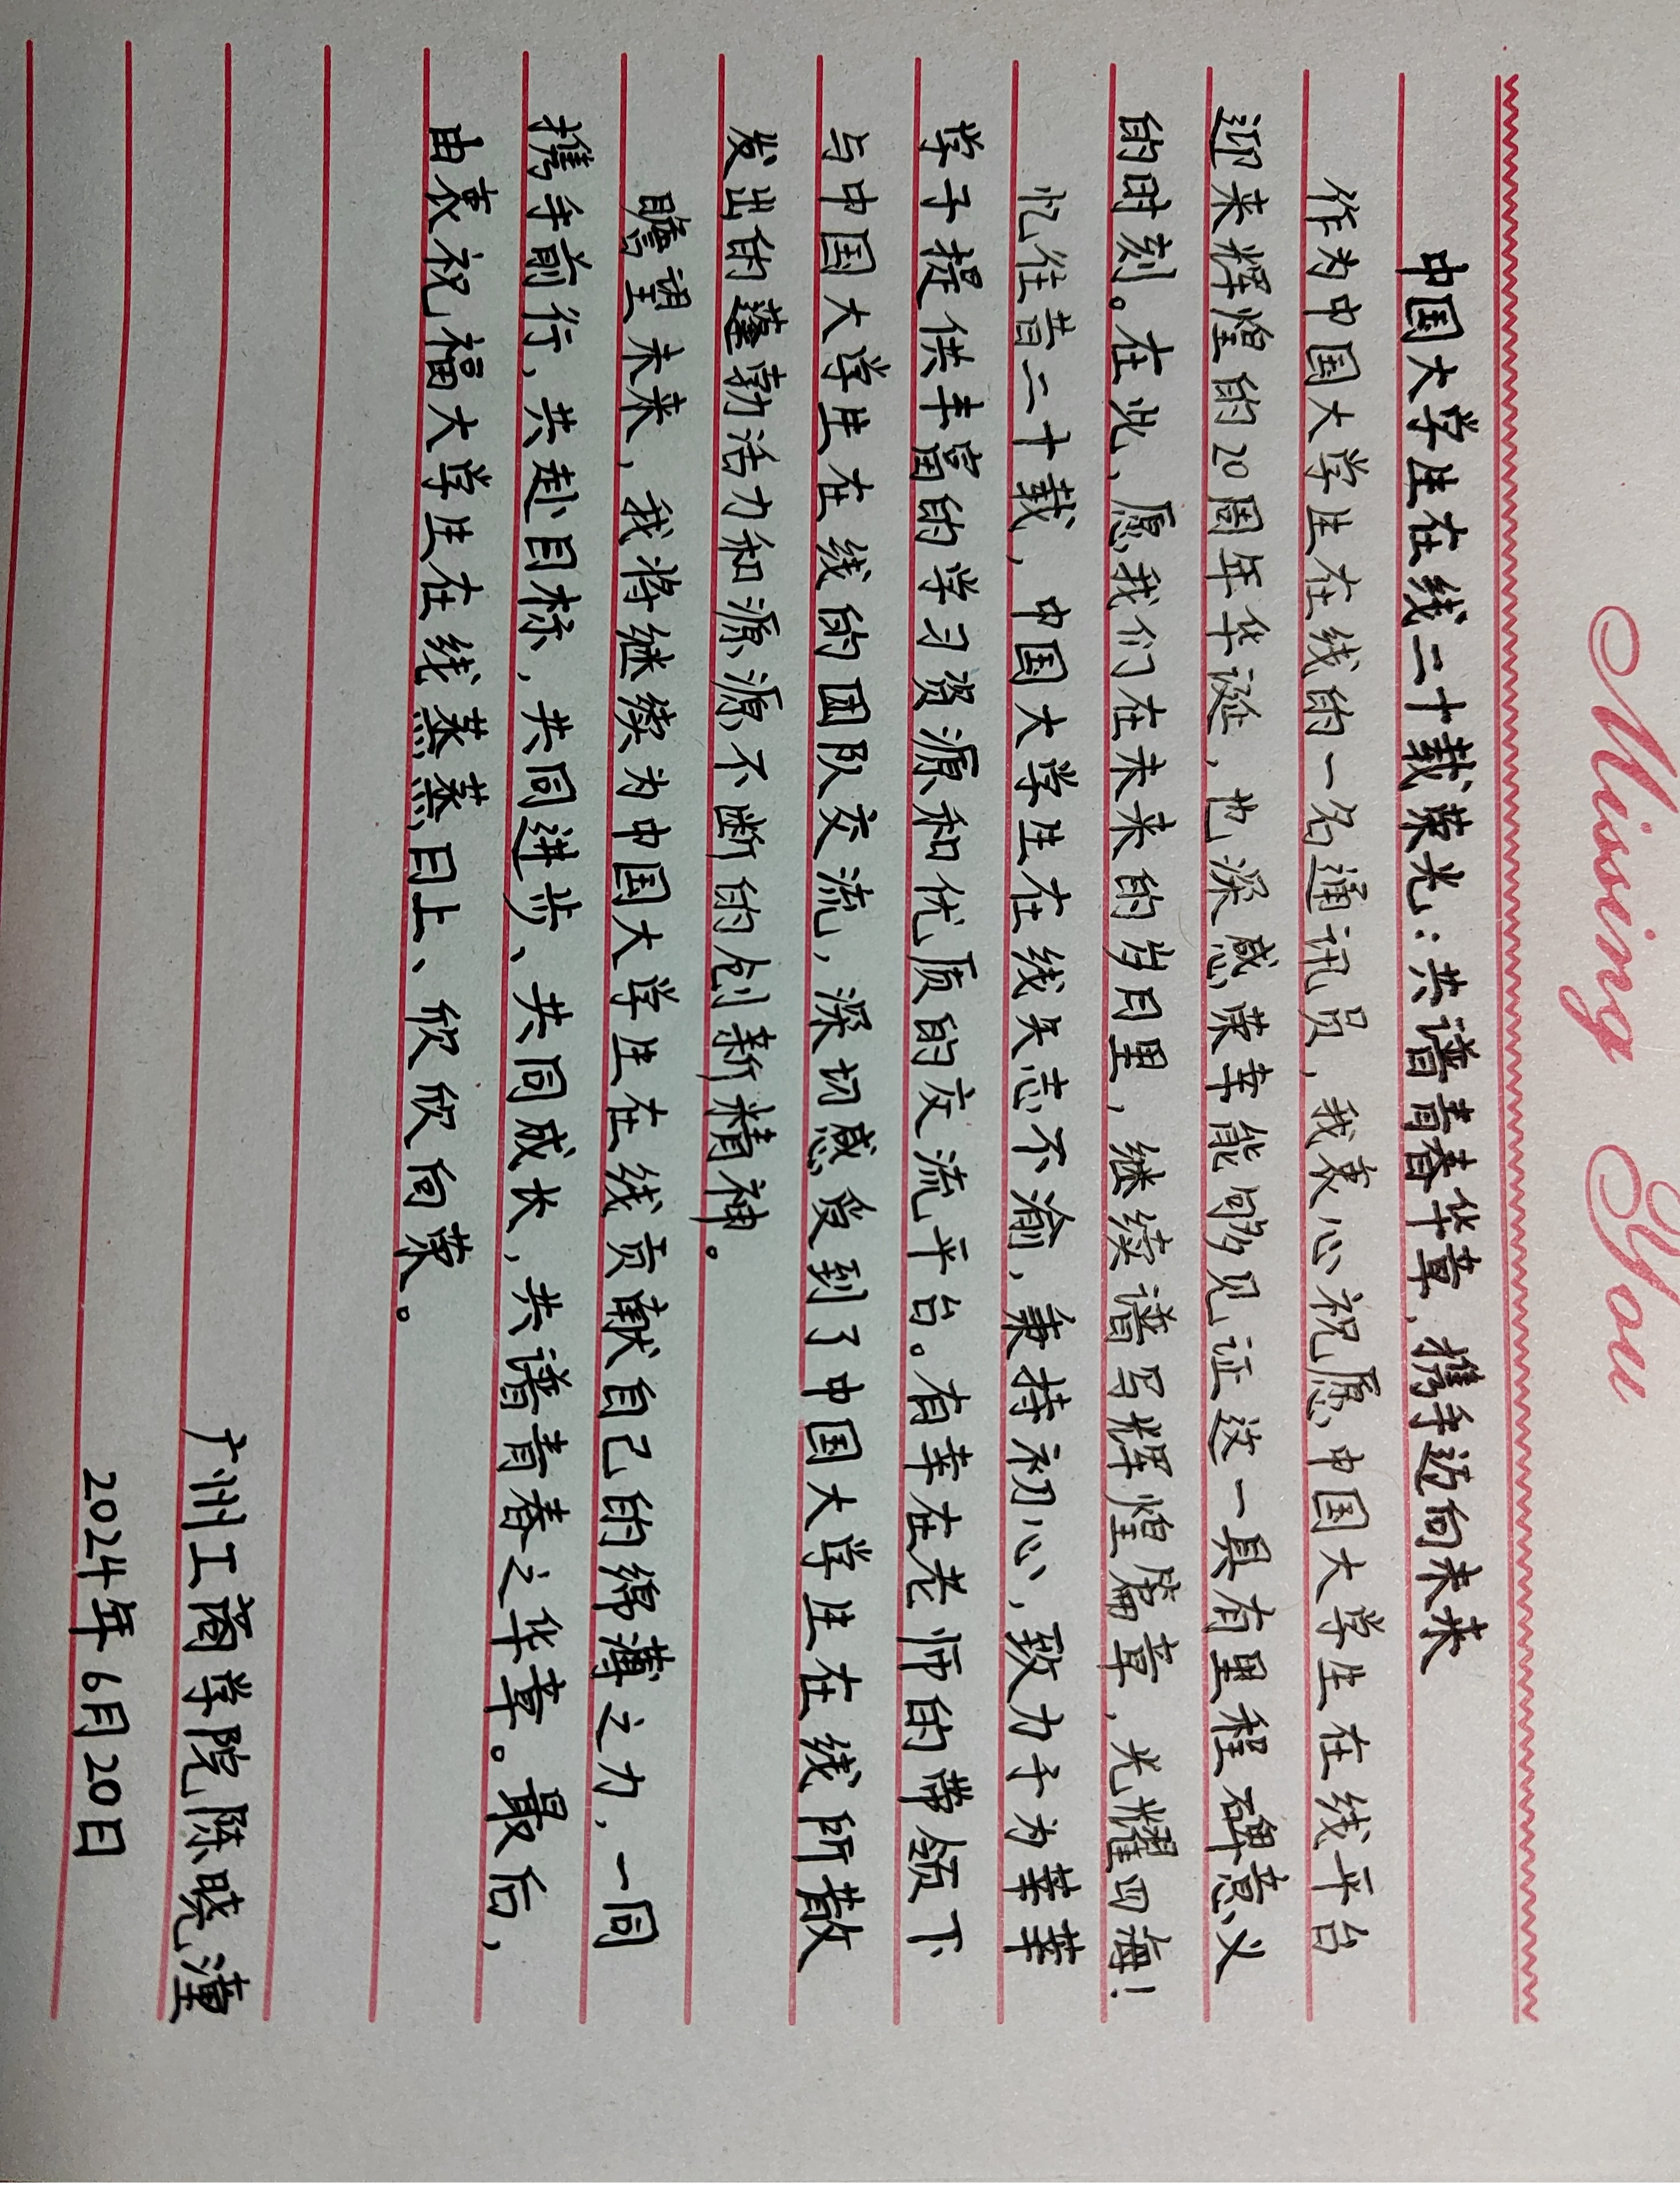 Missing You
中国大学生在线二十载荣光：共谱青春华章，携手迈向未来
作为中国大学生在线的一名通讯员，我衷心祝愿中国大学生在线平台
迎来辉煌的20周年华诞，也深感荣幸能够见证这一具有里程碑意义
的时刻。在此，愿我们在未来的岁月里，继续谱写辉煌篇章，光耀四海！
忆往昔二十载，中国大学生在线矢志不渝，秉持初心，致力于为莘莘
学子提供丰富的学习资源和优质的交流平台。有幸在老师的带领下
与中国大学生在线的团队交流，深切感受到了中国大学生在线所散
发出的蓬勃活力和源源不断的创新精神。
瞻望未来，我将继续为中国大学生在线贡献自己的绵薄之力，一同
携手前行，共赴目标，共同进步、共同成长，共谱青春之华章。最后，
由衷祝福大学生在线蒸蒸日上、欣欣向荣。
广州工商学院陈晓潼
2024年6月20日